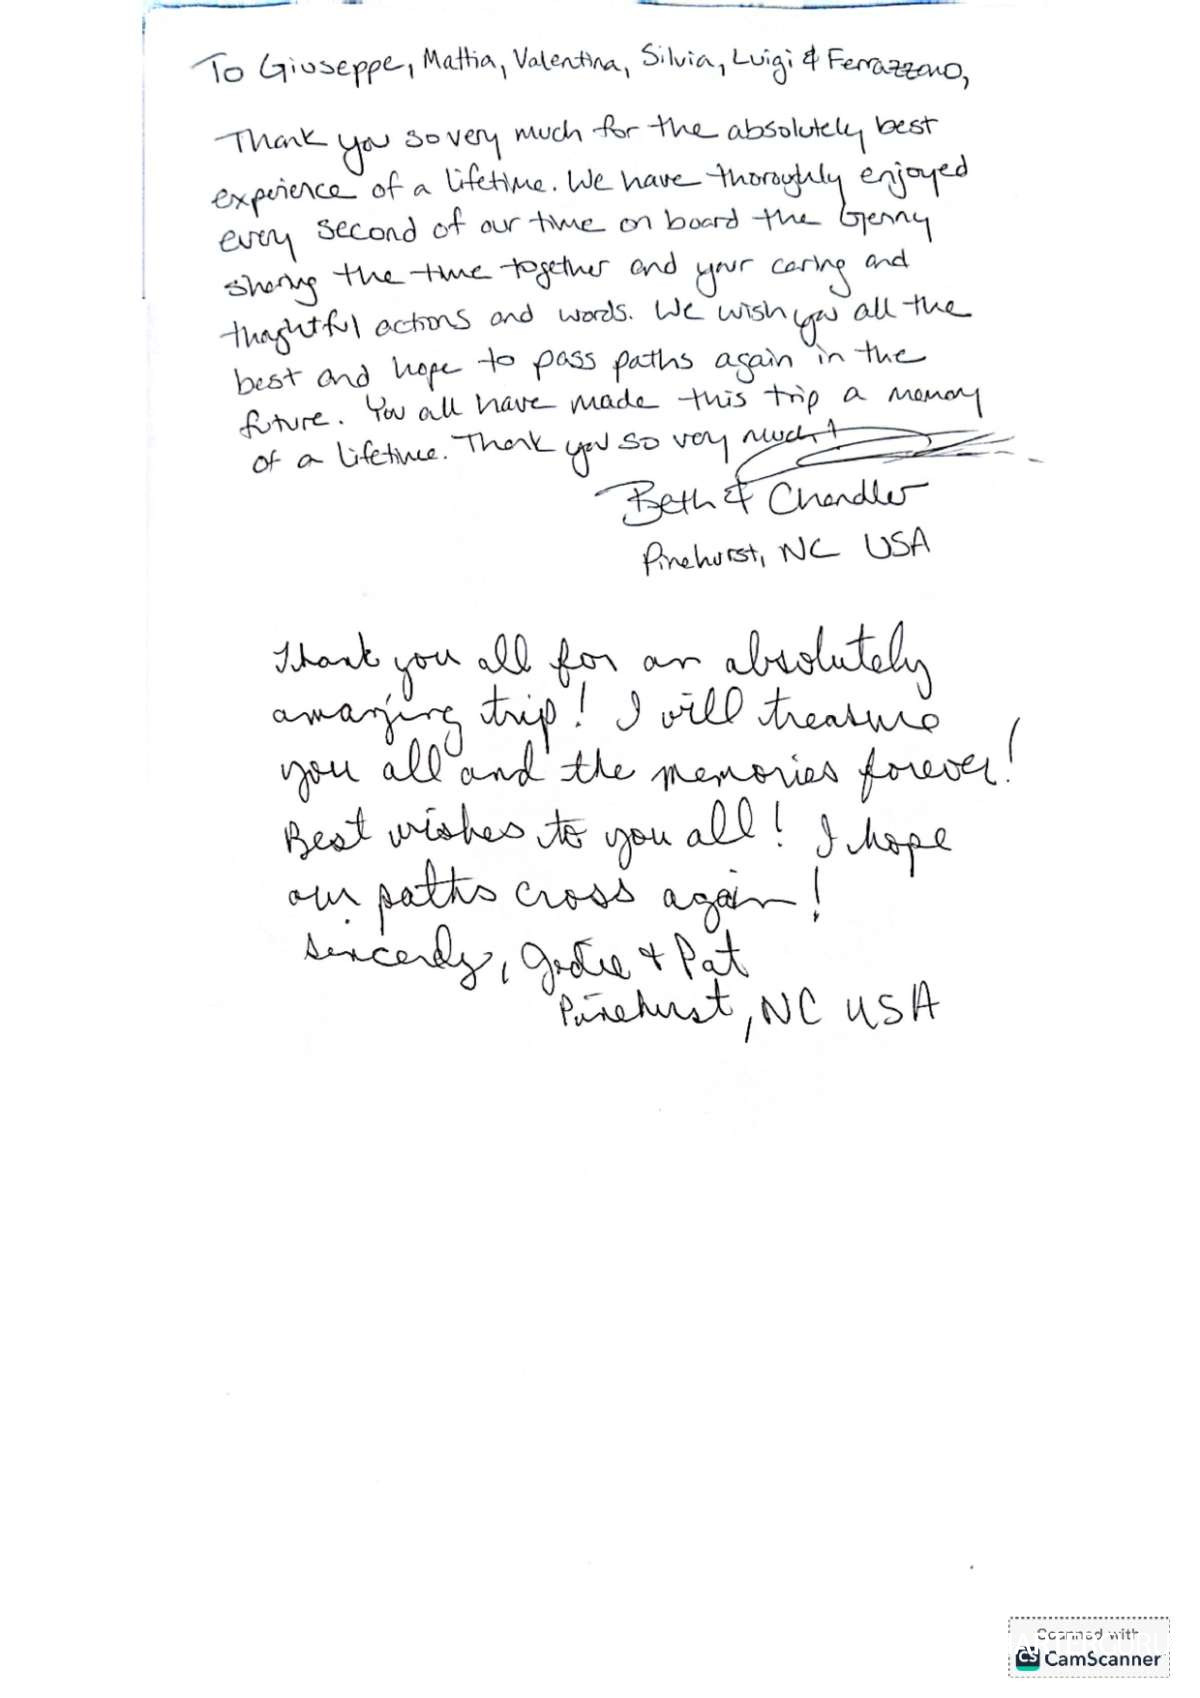 To Giuseppe, Mattia, Valentina, Silvia, Luigi & Ferrazzano,
Thank you so very much for the absolutely best
experience of a lifetime. We have thoroughly enjoyed
every second of our time on board the Genny
sharing the time together and your caring and
thoughtful actions and words. We wish you all the
best and hope to pass paths again in the
future. You all have made this trip a memory
of a lifetime. Thank you so very much!
Beth & Chandler
Pinehurst, NC USA
Thank you all for an absolutely
amazing trip! I will treasure
you all and the memories forever!
Best wishes to you all! I hope
our paths cross again!
Sincerely, Jodie + Pat
Pinehurst, NC USA
Scanned with
CS CamScanner